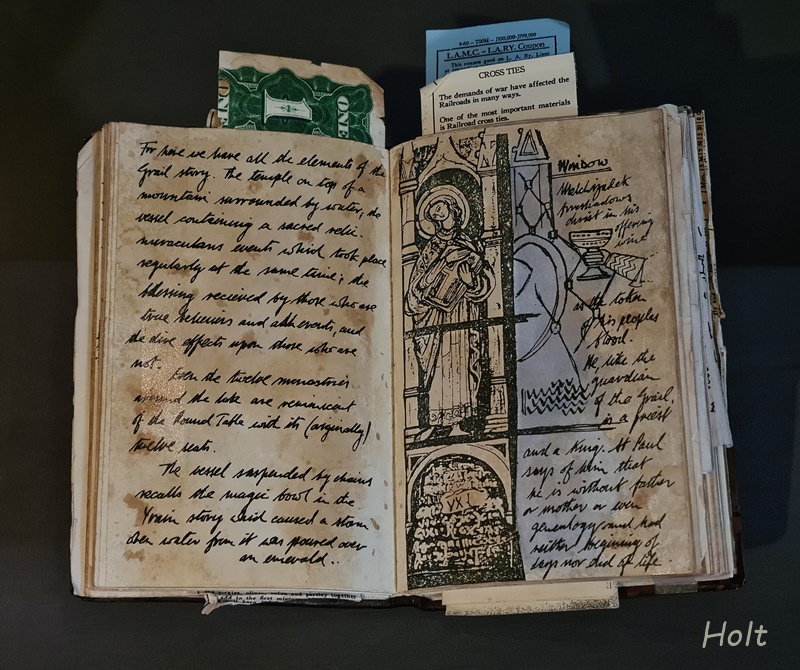 ONE
1
ONE
4-60 – 750M –
L.A.M.C. – L.A.RY. Coupon
This coupon good on L. A. Ry. Lines
CROSS TIES
The demands of war have affected the
Railroads in many ways.
One of the most important materials
is Railroad cross ties.
For here we have all the elements of the
Grail story. The temple on top of a
mountain surrounded by water, the
vessel containing a sacred relic.
miraculous events which took place
regularly at the same time; the
blessing recieved by those who are
true believers and
the dire affects upon those who are
not.
Even the twelve monasteries
around the lake are reminiscent
of the Round Table with its (originally)
twelve seats.
The vessel suspended by chains
recalls the magic bowl in the
Yvain story which caused a storm
when water from it was poured over
an emerald..
Window
Melchizedek
foreshadows
Christ in his
offering
wine
as the token
of his peoples
blood.
He, like the
guardian
of the Grail,
is a priest
and a King. St Paul
says of him that
he is without father
or mother or even
genealogy and had
neither beginning of
days nor end of life.
VXL
pickles, olives, onion and parsley together
add to the first mixture
Holt